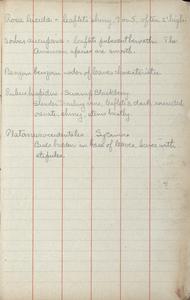 Rosa lucida - leaflets shiny, 7 or 5, often 2' high.
Sorbus aucuparia - leaflets pubescent beneath. The
American species are smooth.
Benzoin benzoin odor of leaves characteristic.
Rubus hispidus - Swamp Blackberry
Slender trailing vine, leaflets dark
ovate, shiny, stems bristly.
Platanus occidentalis Sycamore
Buds hidden in base of leaves, leaves with
stipules.